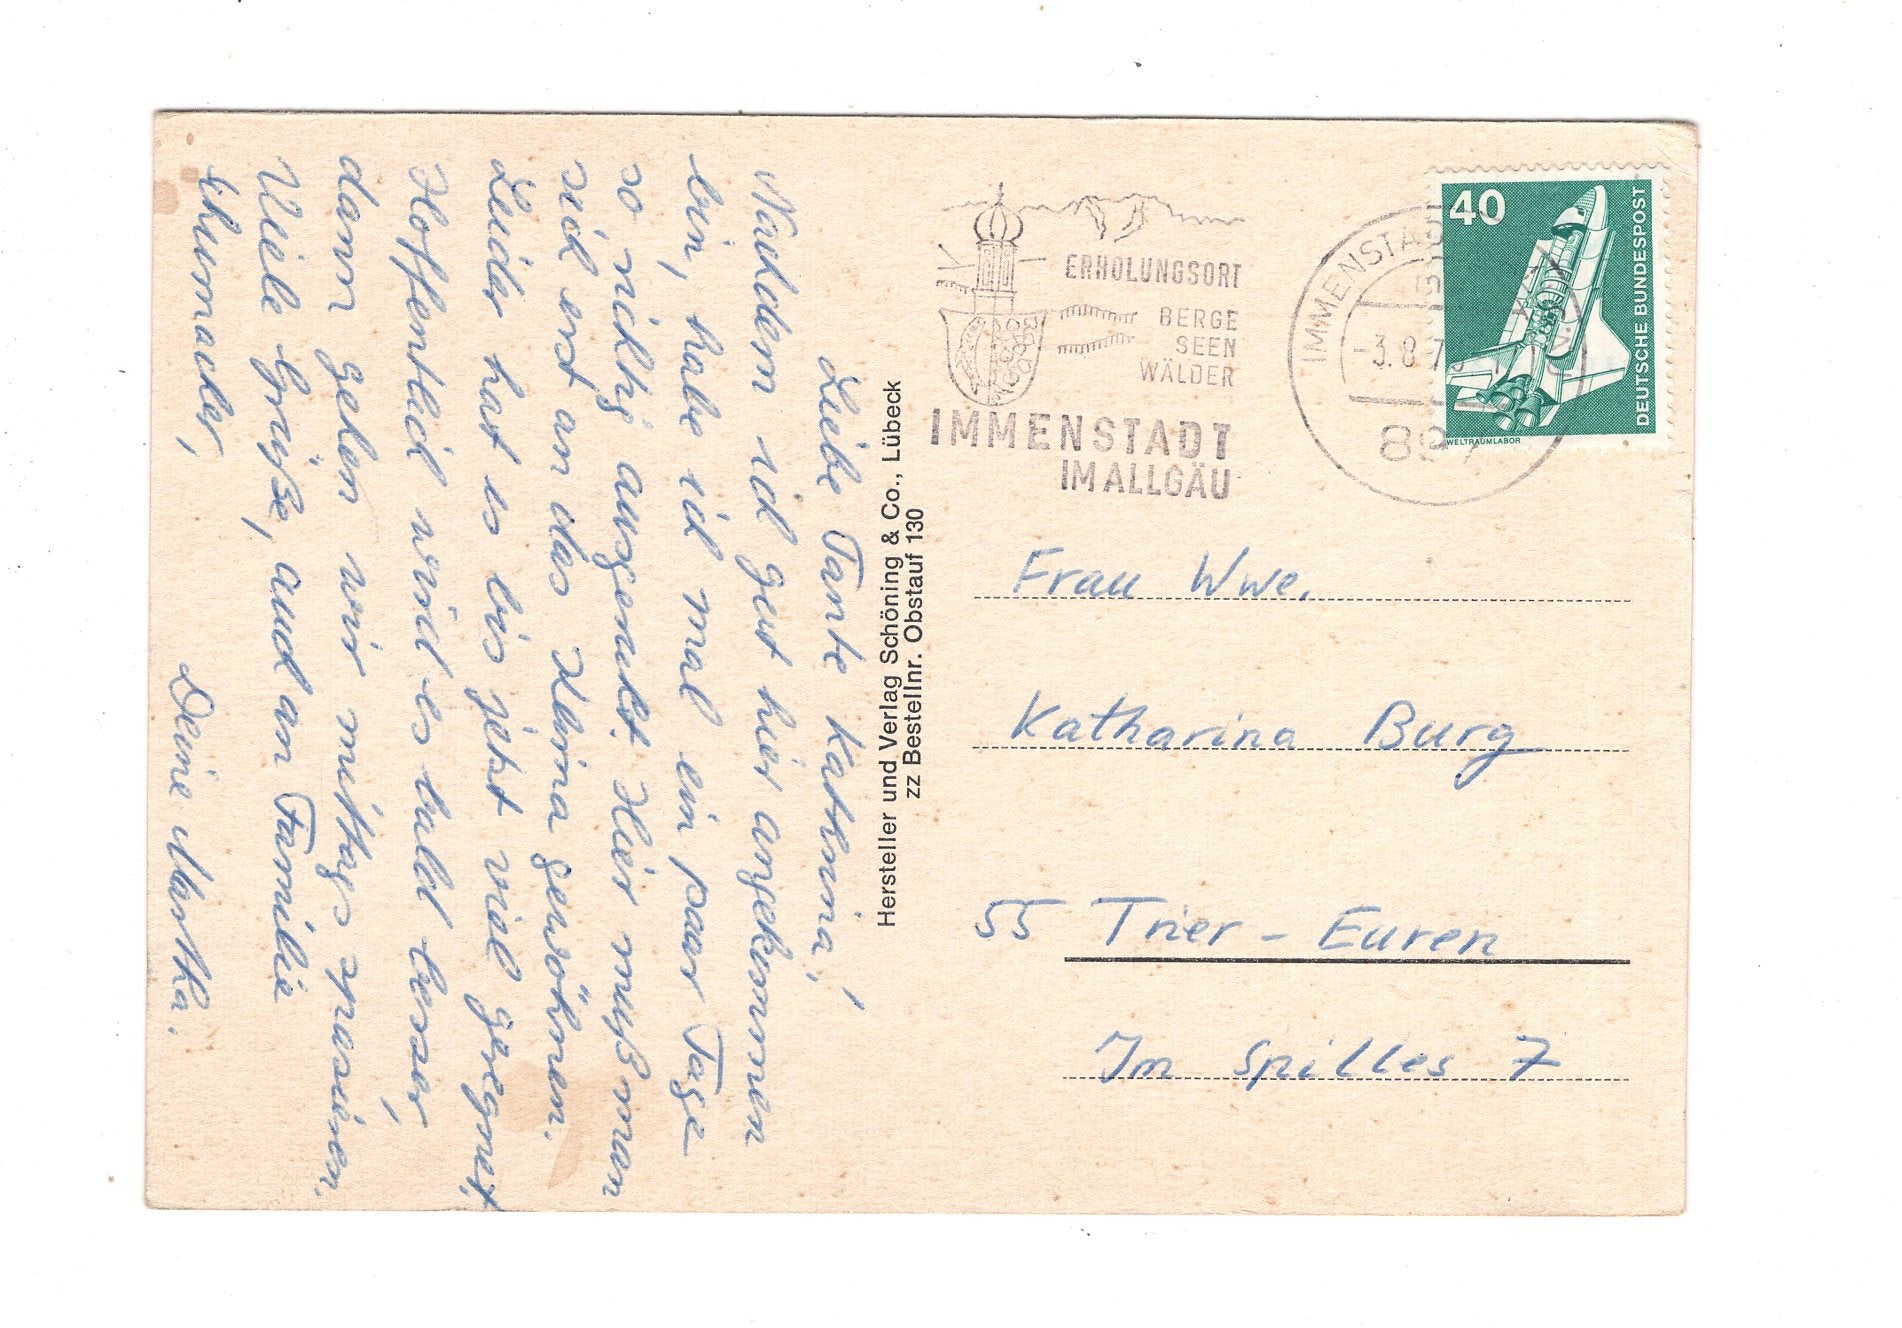 Liebe Tante Kathrina!
Nachdem ich gut hier angekommen
bin, habe ich mal ein paar Tage
so richtig ausgeruht. Hier muß man
sich erst an das Klima gewöhnen.
Leider hat es bis jetzt viel geregnet,
Hoffentlich wird es bald besser,
dann gehen wir mittags spazieren.
Viele Grüße, auch an Familie
Schumacher,
Deine Martha.
Hersteller und Verlag Schöning & Co., Lübeck
zz Bestellnr. Obstauf 130
ERHOLUNGSORT
BERGE
SEEN
WÄLDER
IMMENSTADT
IM ALLGÄU
IMMENSTADT
-3.8.7
897
40
DEUTSCHE BUNDESPOST
WELTRAUMLABOR
Frau Wwe.
Katharina Burg
55 Trier - Euren
Im Spilles 7